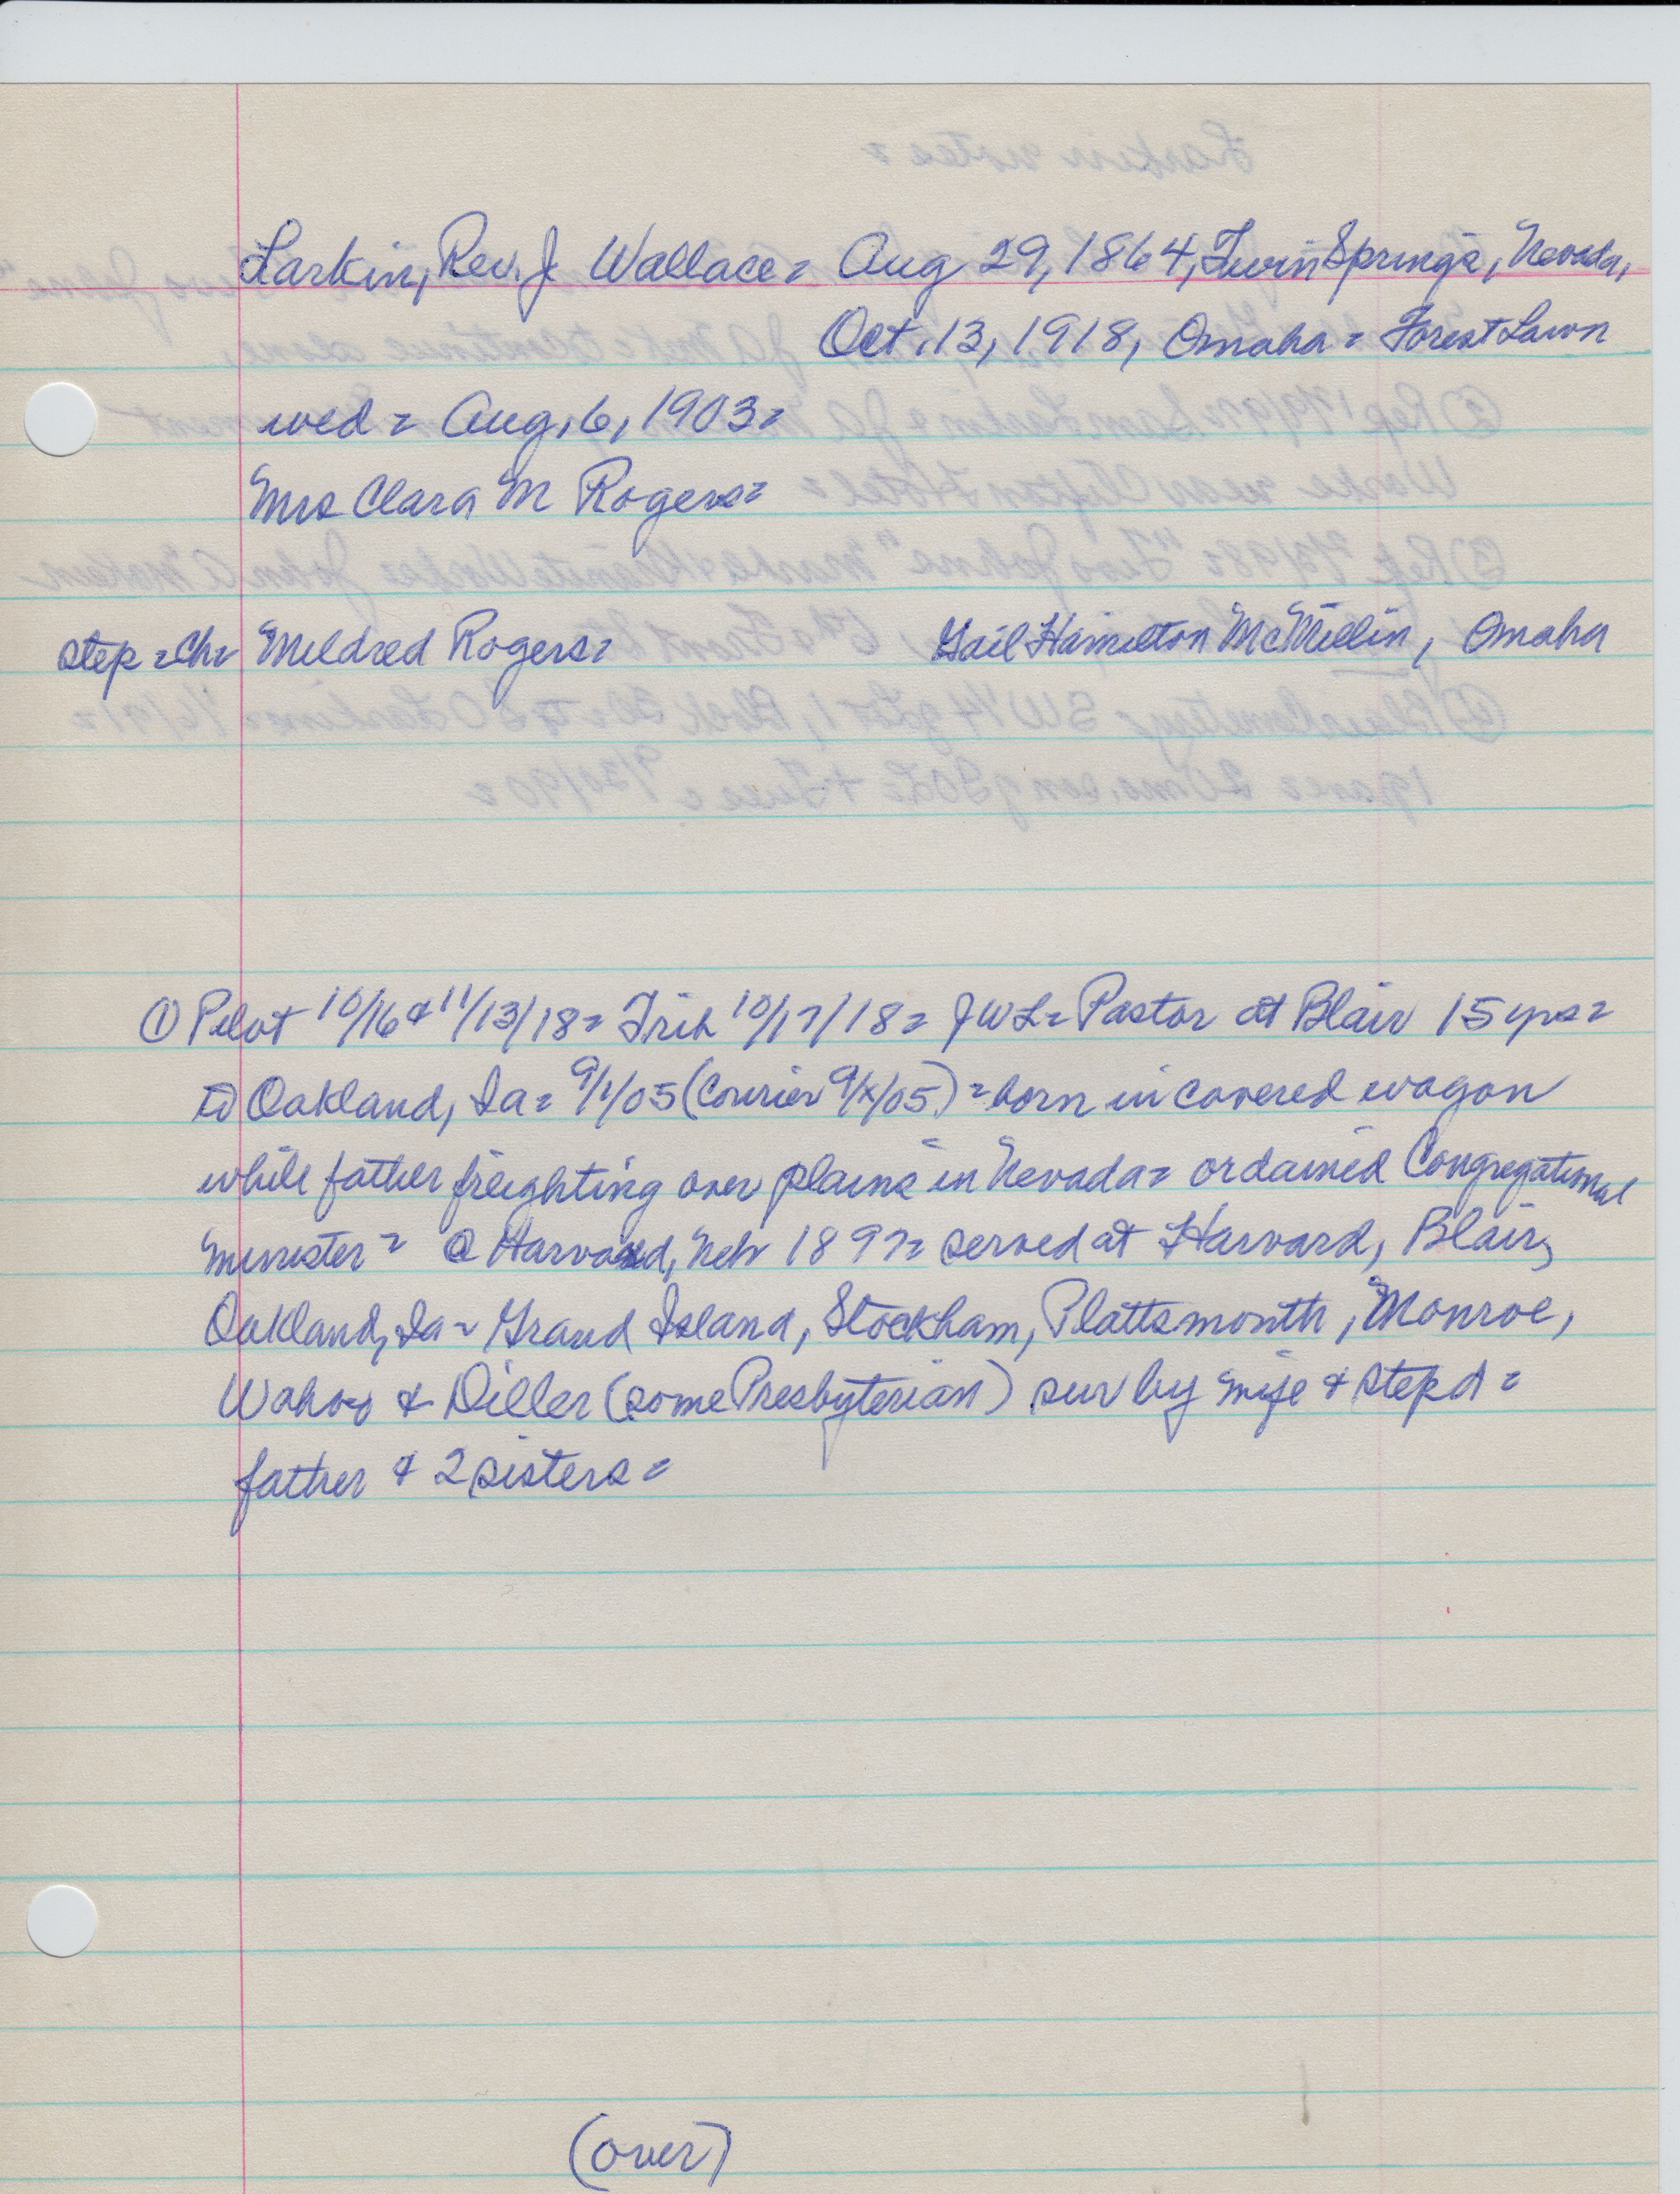 Larkin, Rev. J Wallace = Aug 29, 1864, Twin Springs, Nevada,
Oct. 13, 1918, Omaha = Forest Lawn
wed = Aug. 6, 1903 =
Mrs Clara M Rogers =
step = Ch = Mildred Rogers = Gail Hamilton McMillin, Omaha
① Pilot 10/16 & 11/13/18 = Trib 10/17/18 = JWL = Pastor at Blair 15 yrs =
to Oakland, Ia = 9/1/05 (Courier 9/x/05) = born in covered wagon
while father freighting over plains in Nevada = ordained Congregational
minister = @ Harvard, Neb 1897 = served at Harvard, Blair,
Oakland, Ia = Grand Island, Stockham, Plattsmouth, Monroe,
Wahoo & Diller (some Presbyterian) sur by wife & step d =
father & 2 sisters =
(over)